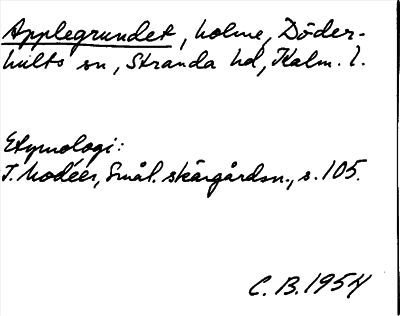 Applegrundet, holme, Döder-
hults sn, Stranda hd, Kalm. l.
Etymologi:
I. Modéer, Smål. skärgårdsn., s. 105.
C. B. 1954